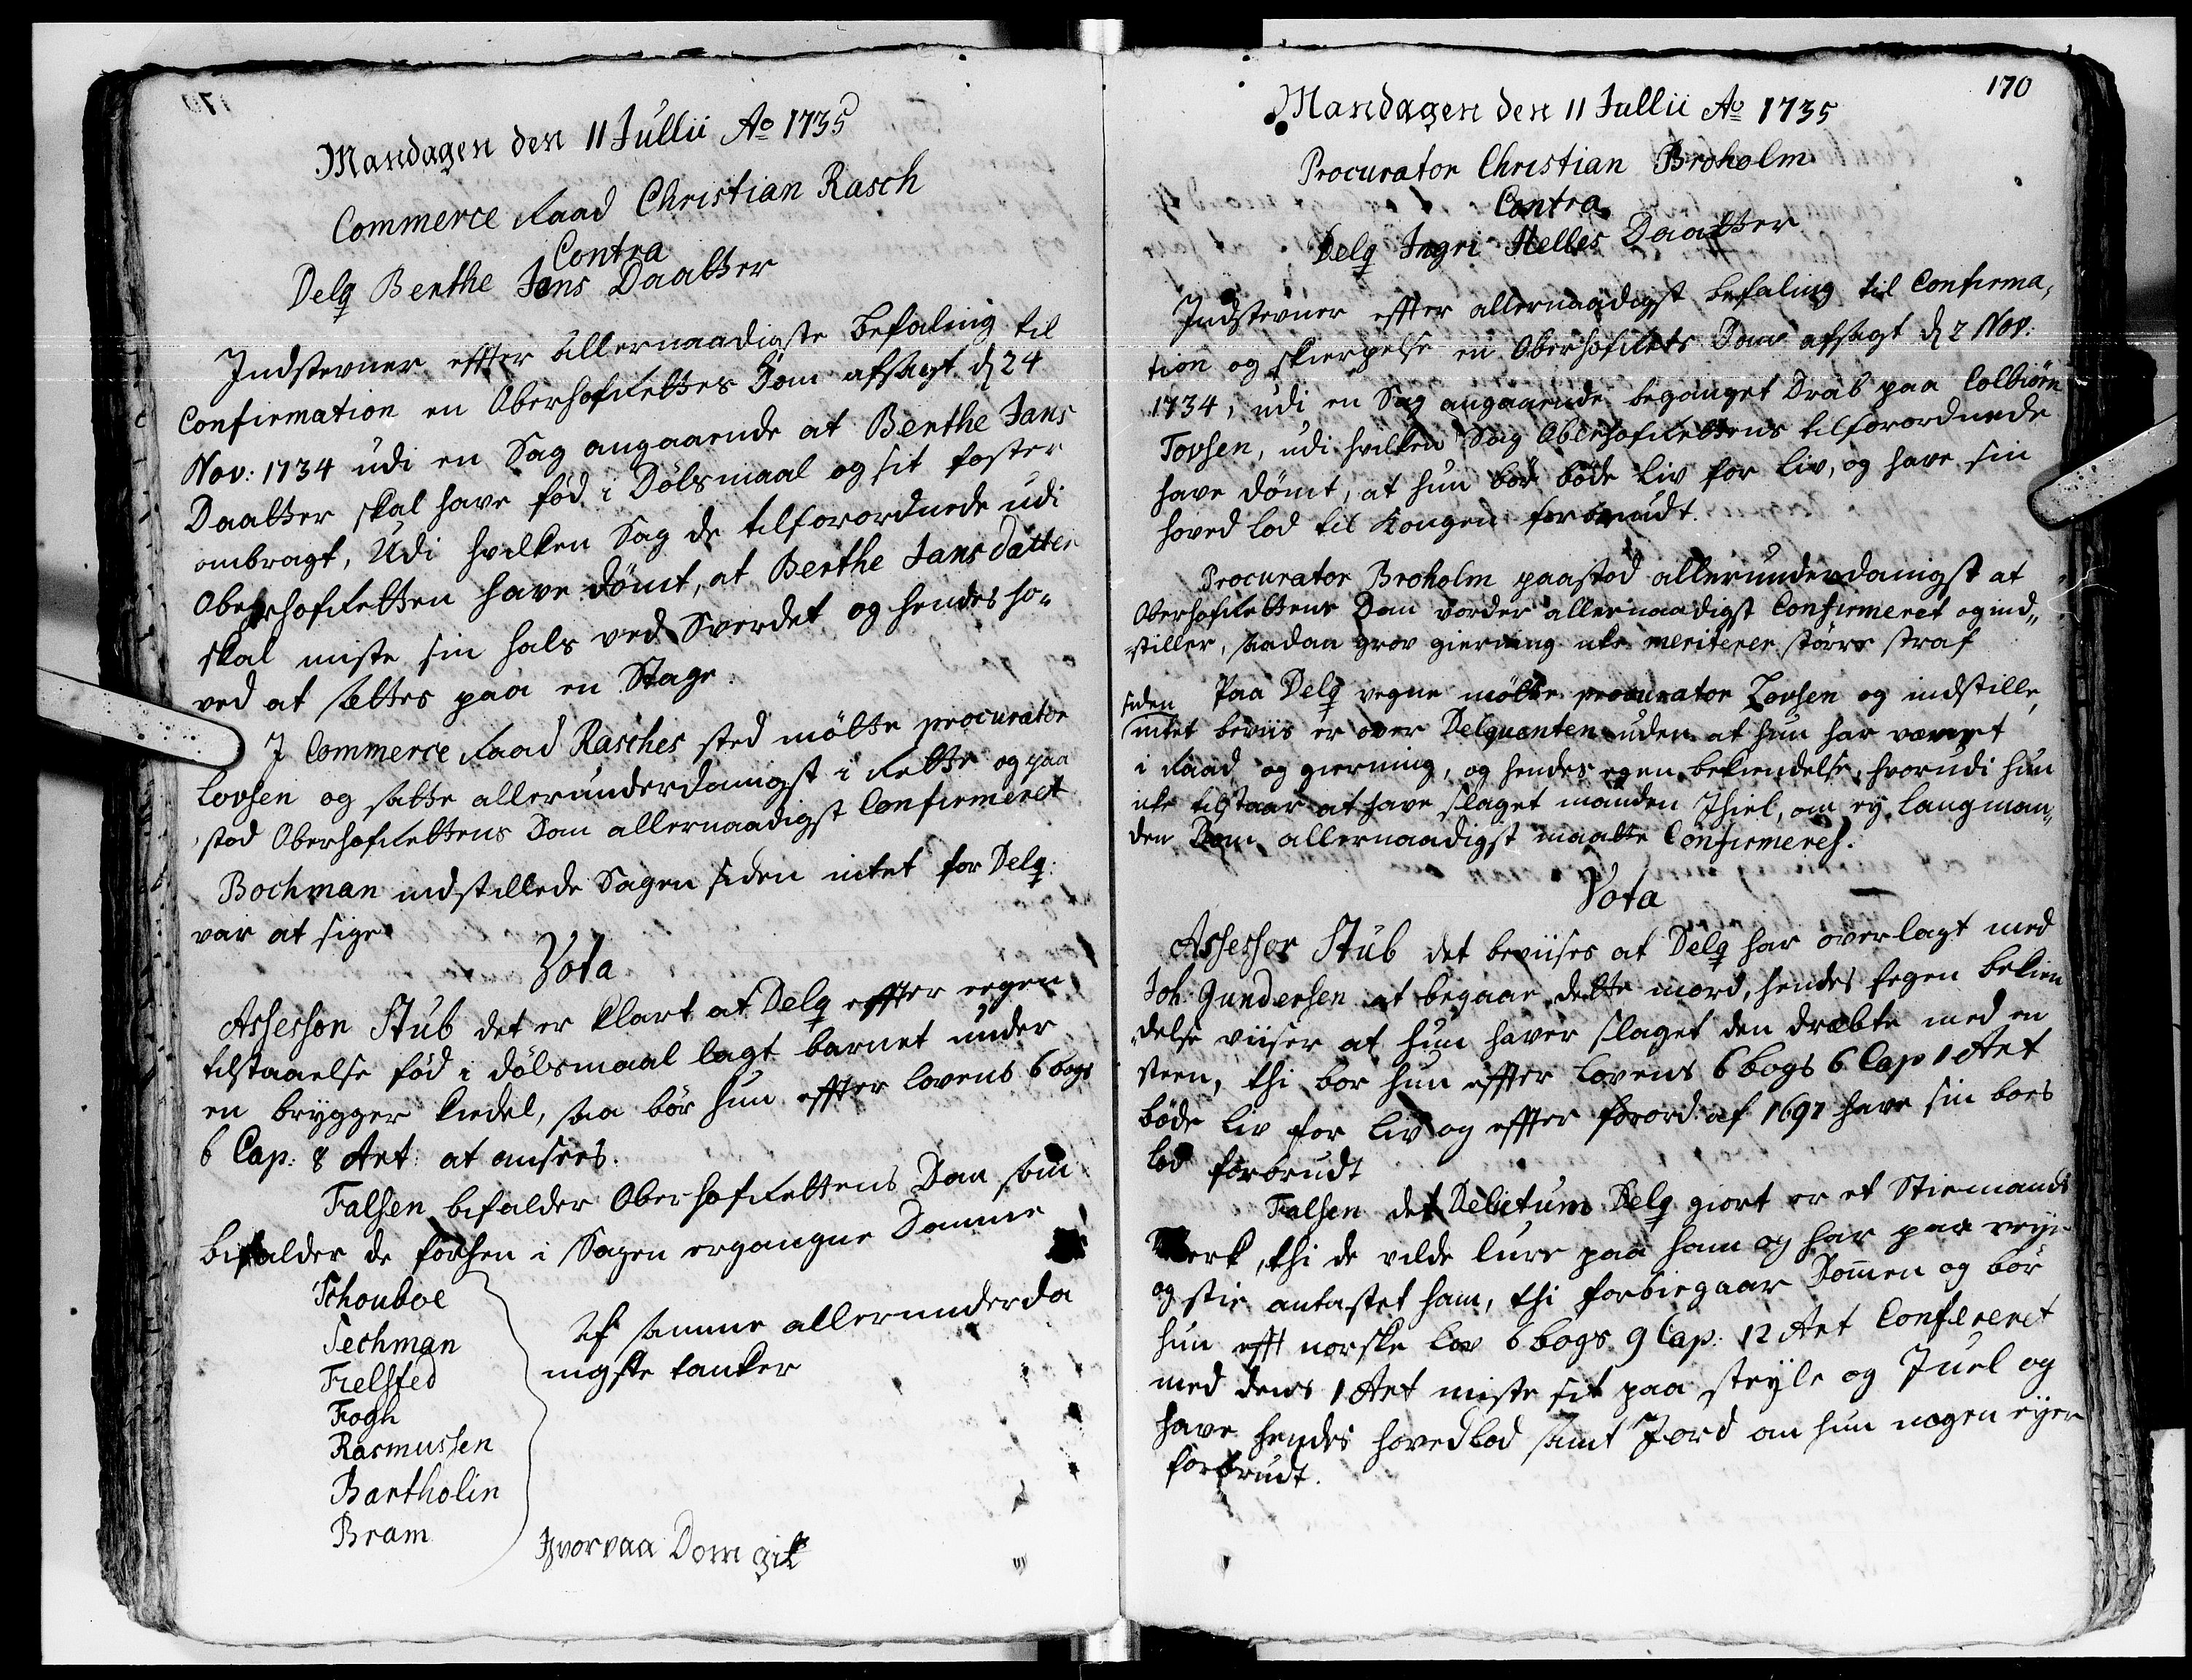 Mandagen den 11 Jullii Ao 1735
Commerce Raad Christian Rasch
Contra
Delq Berthe Jans Daatter
Indstevner effter allernaadigste befaling til
Confirmation en Oberhofrettes Dom afsagt d 24
Nov: 1734 udi en Sag angaaende at Berthe Jans
Daatter skal have fød i Dølsmaal og sit foster
ombragt, Udi hvilken Sag de tilforordnede udi
Oberhofretten have dømt, at Berthe Jansdatter
skal miste sin hals ved Sverdet og hendes ho-
ved at settes paa en Stage.
I Commerce Raad Rasches sted mødte procurator
Lovsen og satte allerunderdanigst i rette og paa
stod Oberhofrettens Dom allernaadigst Confirmeret
Bochman indstillede Sagen siden intet for Delq:
var at sige
Vota
Assessor Stub det er klart at Delq effter egen
tilstaaelse fød i dølsmaal lagt barnet under
en brygger kiedel, saa bør hun effter lovens 6 bogs
6 Cap: 8 Art: at ansees.
Falsen befalder Oberhofrettens Dom som
bifalder de forhen i Sagen ergangne Domme
Schouboe
Techman
Frelsted
Fogh
Rasmussen
Bartholin
Bram
Af samme allerunderda
nigste tanker
Hvorpaa Dom gik
170
Mandagen den 11 Jullii Ao 1735
Procurator Christian Broholm
Contra
Delq Ingri Helles Daatter
Indstevner effter allernaadigst befaling til Confirma,
tion og skierpelse en Oberhofrets Dom afsagt d 2 Nov:
1734, udi en Sag angaaende beganget Drab paa Colbiørn
Tovsen, udi hvilken Sag Oberhofrettens tilforordnede
have dømt, at hun bør bøde liv for liv, og have sin
hoved lod til Kongen forbrudt.
Procurator Broholm paastod allerunderdanigst at
Oberhofrettens Dom vorder allernaadigst Confirmeret og ind„
stiller, saadan grov gierning ike meriterer større straf
Paa Delq vegne mødte procurator Lovsen og indstille,
siden
intet beviis er over Delquenten uden at hun har været
i Raad og gierning, og hendes egen bekiendelse, hvorudi hun
ike tilstaar at have slaget manden Ihiel, om ey laugman„
den Dom allernaadigst maatte Confirmeres.
Vota
Assessor Stub det beviises at Delq har overlagt med
Joh. Gundersen at begaae dette mord, hendes egen bekien
delse viiser at hun haver slaget den dræbte med en
steen, thi bør hun effter Lovens 6 bogs 6 Cap 1 Art
bøde liv for liv og effter forord. af 1697 have sin boes
lod forbrudt
Falsen det Delictum Delq giort er et Stiemands
Verk, thi de vilde lure paa ham og har paa vey
og stie antastet ham, thi forbiegaar Dommen og bør
hun efft norske lov 6 bogs 9 Cap: 12 Art Confereret
med dens 1 Art miste sit paa steyle og Juel og
have hendes hovedlod samt Jord om hun nogen eyer
forbrudt.